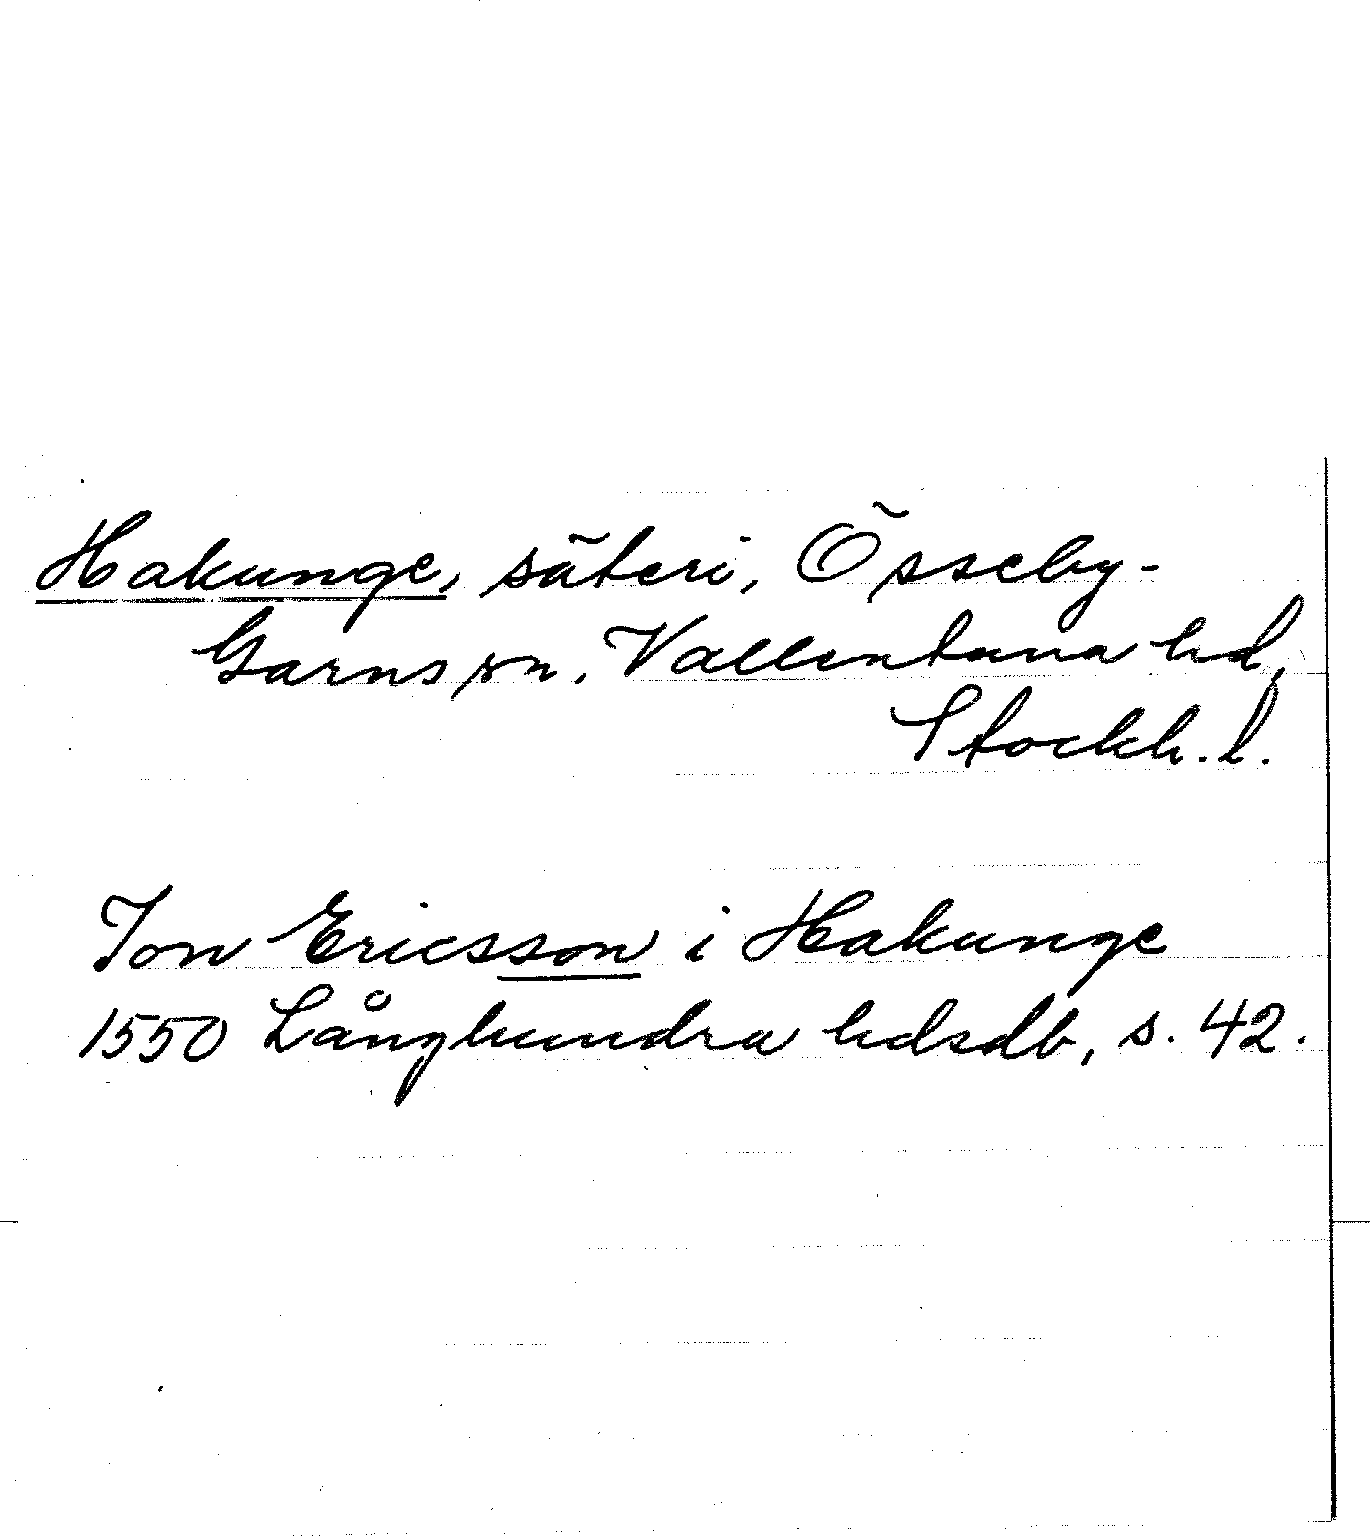 Hakunge, säteri, Össeby-
Garns sn, Vallentuna hd,
Stockh. l.
Jon Ericsson i Hakunge
1550 Långhundra hdsdb, s. 42.